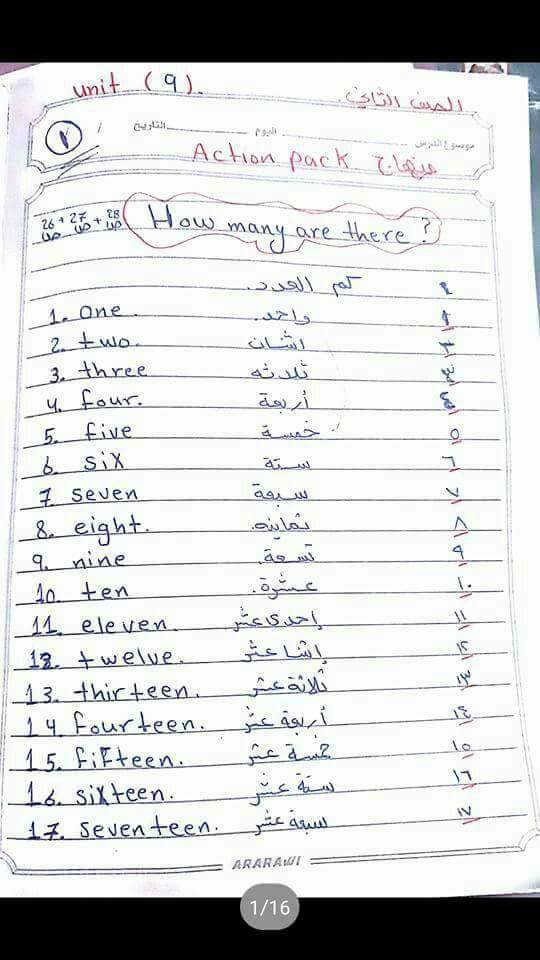 unit (9). الصف الثاني.
١ / التاريخ اليوم موضوع الدرس
Action pack منهاج
ص26 + ص27 + ص28 How many are there?
كم العدد.
1. one واحد. ١
2. two. اثنان ٢
3. three ثلاثه ٣
4. four. أربعة ٤
5. five خمسة ٥
6 six ستة ٦
7 seven سبعة ٧
8. eight. ثمانيه. ٨
9. nine تسعة. ٩
10. ten عشرة. ١٠
11. eleven. إحدى عشر ١١
12. twelve. إثنا عشر ١٢
13. thirteen. ثلاثة عشر ١٣
14 fourteen. أربعة عشر ١٤
15. fifteen. خمسة عشر ١٥
16. sixteen. ستة عشر ١٦
17. seventeen. سبعة عشر ١٧
ARARAWI
1/16